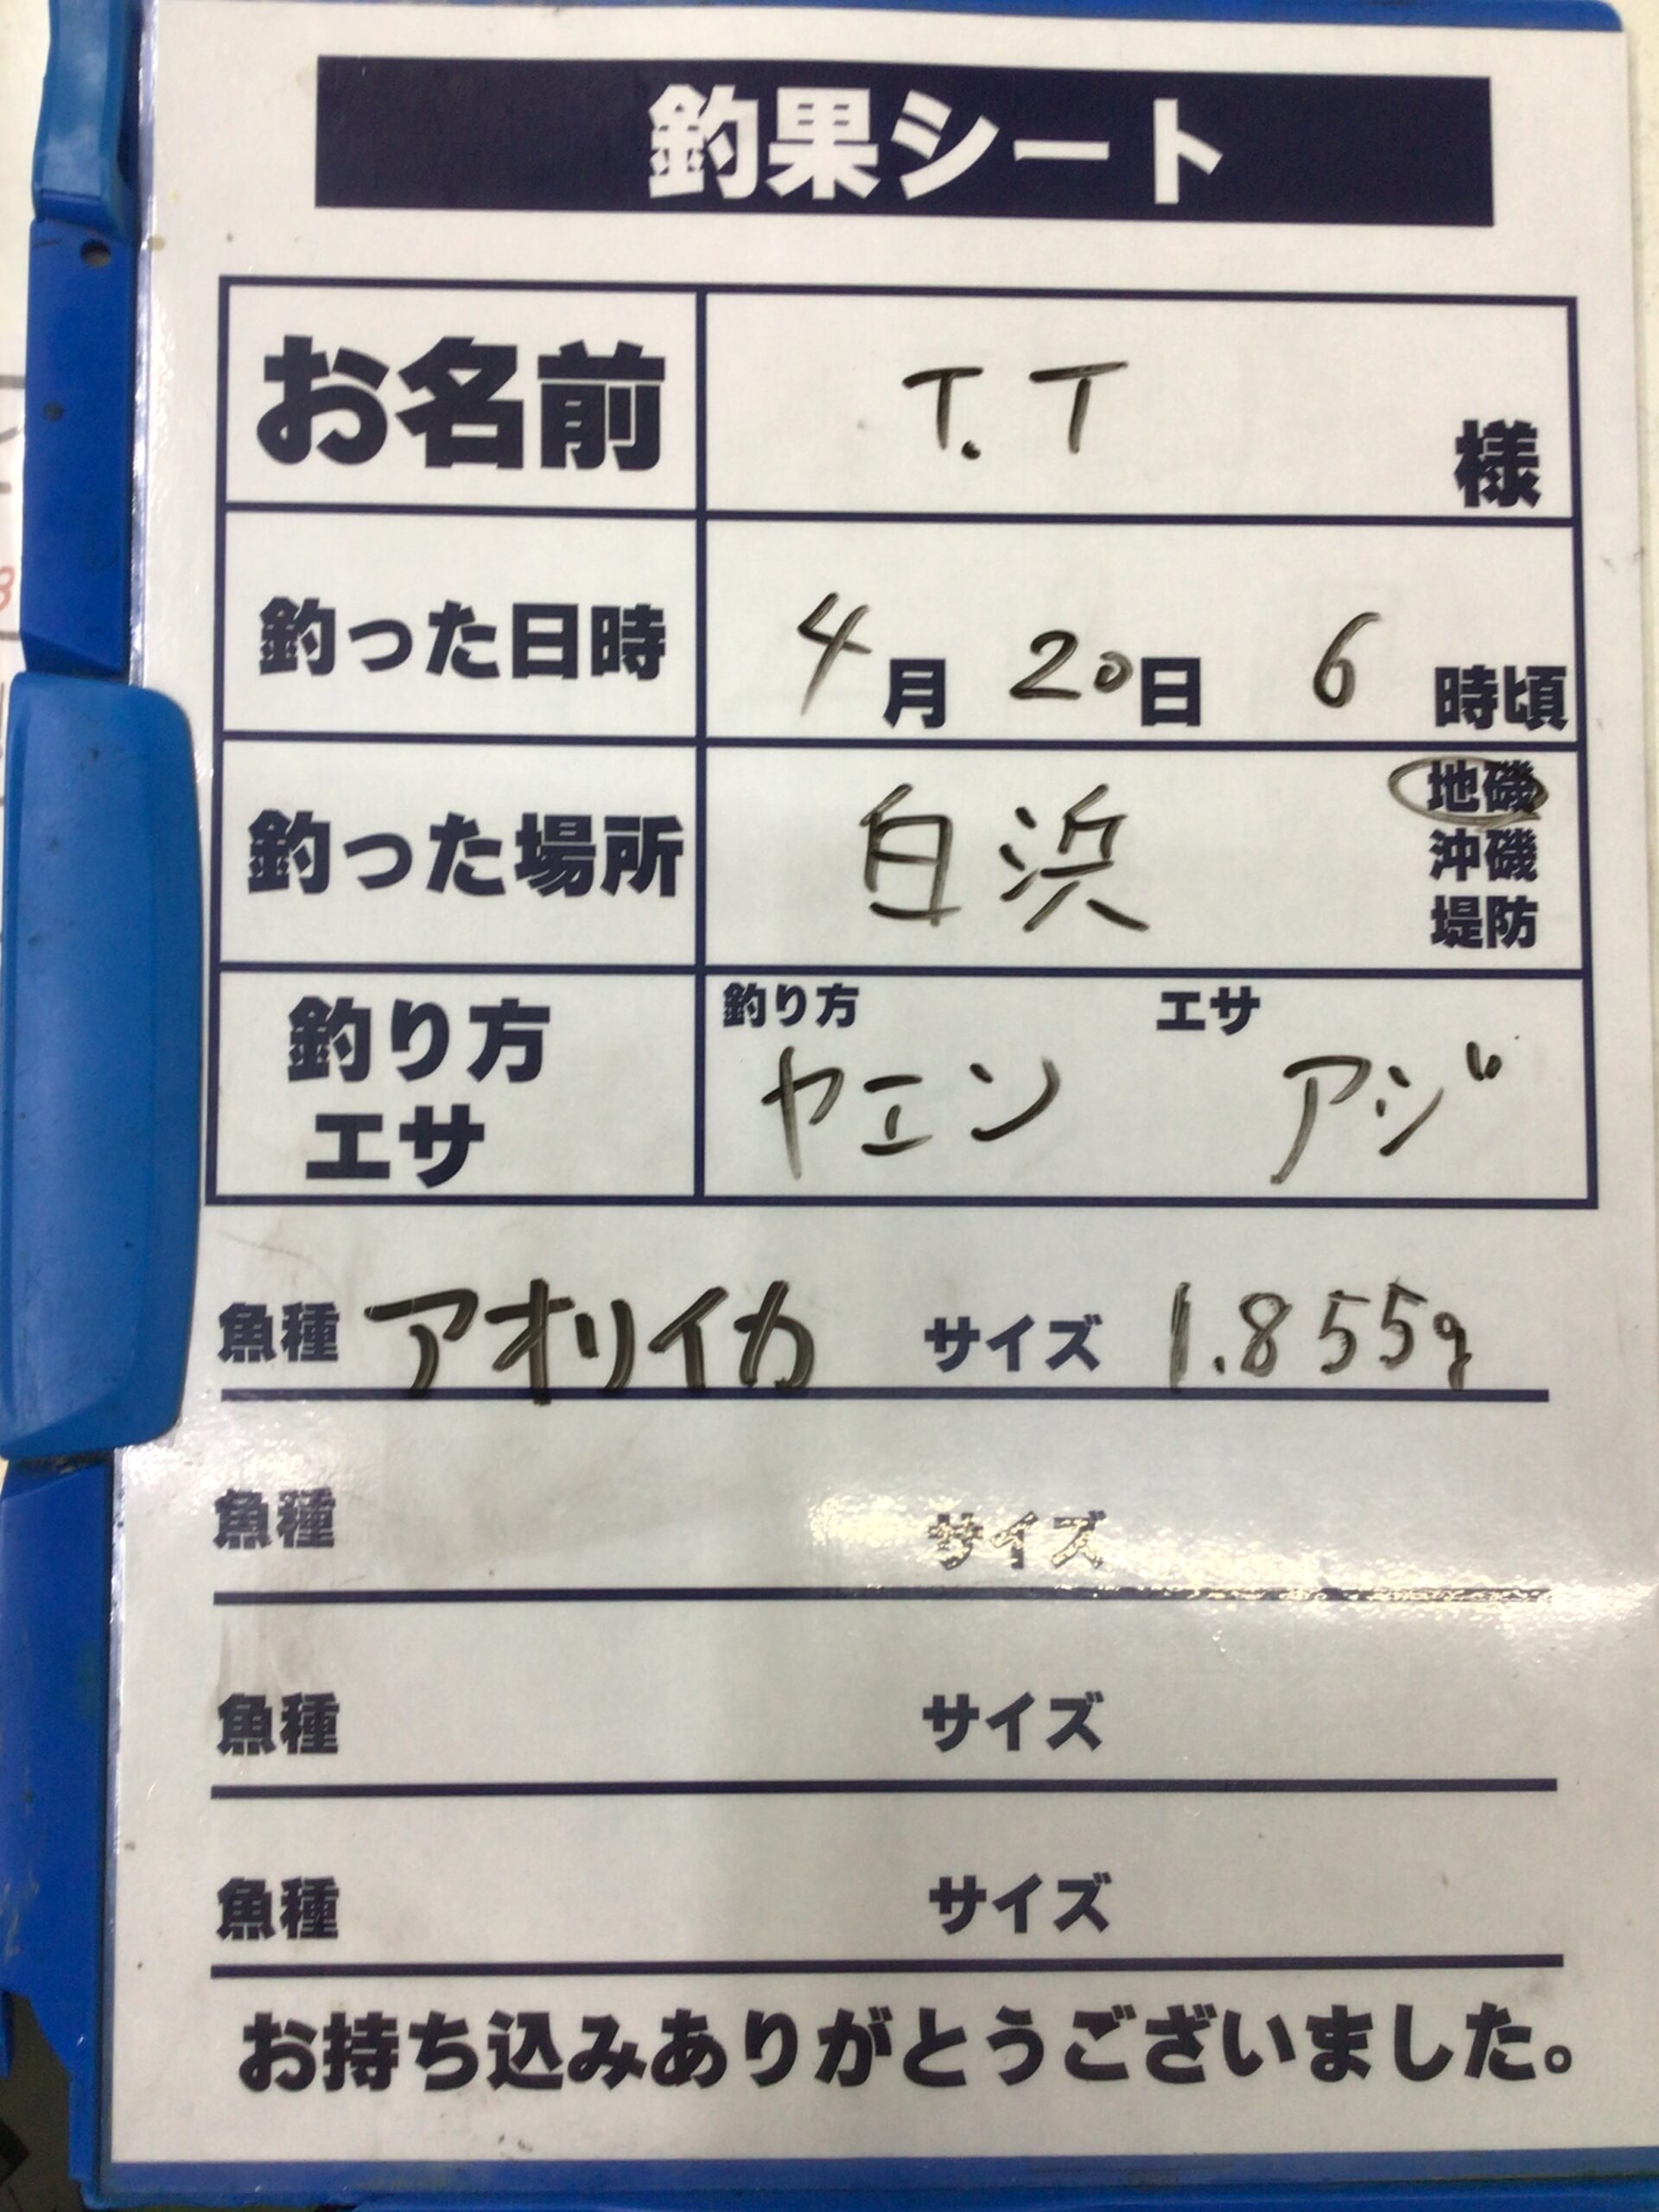 釣果シート
お名前 T.T 様
釣った日時 4月 20日 6時頃
釣った場所 白浜 地磯
沖磯
堤防
釣り方 エサ
釣り方 ヤエン エサ アジ
魚種 アオリイカ サイズ 1.855g
魚種 サイズ
魚種 サイズ
魚種 サイズ
お持ち込みありがとうございました。